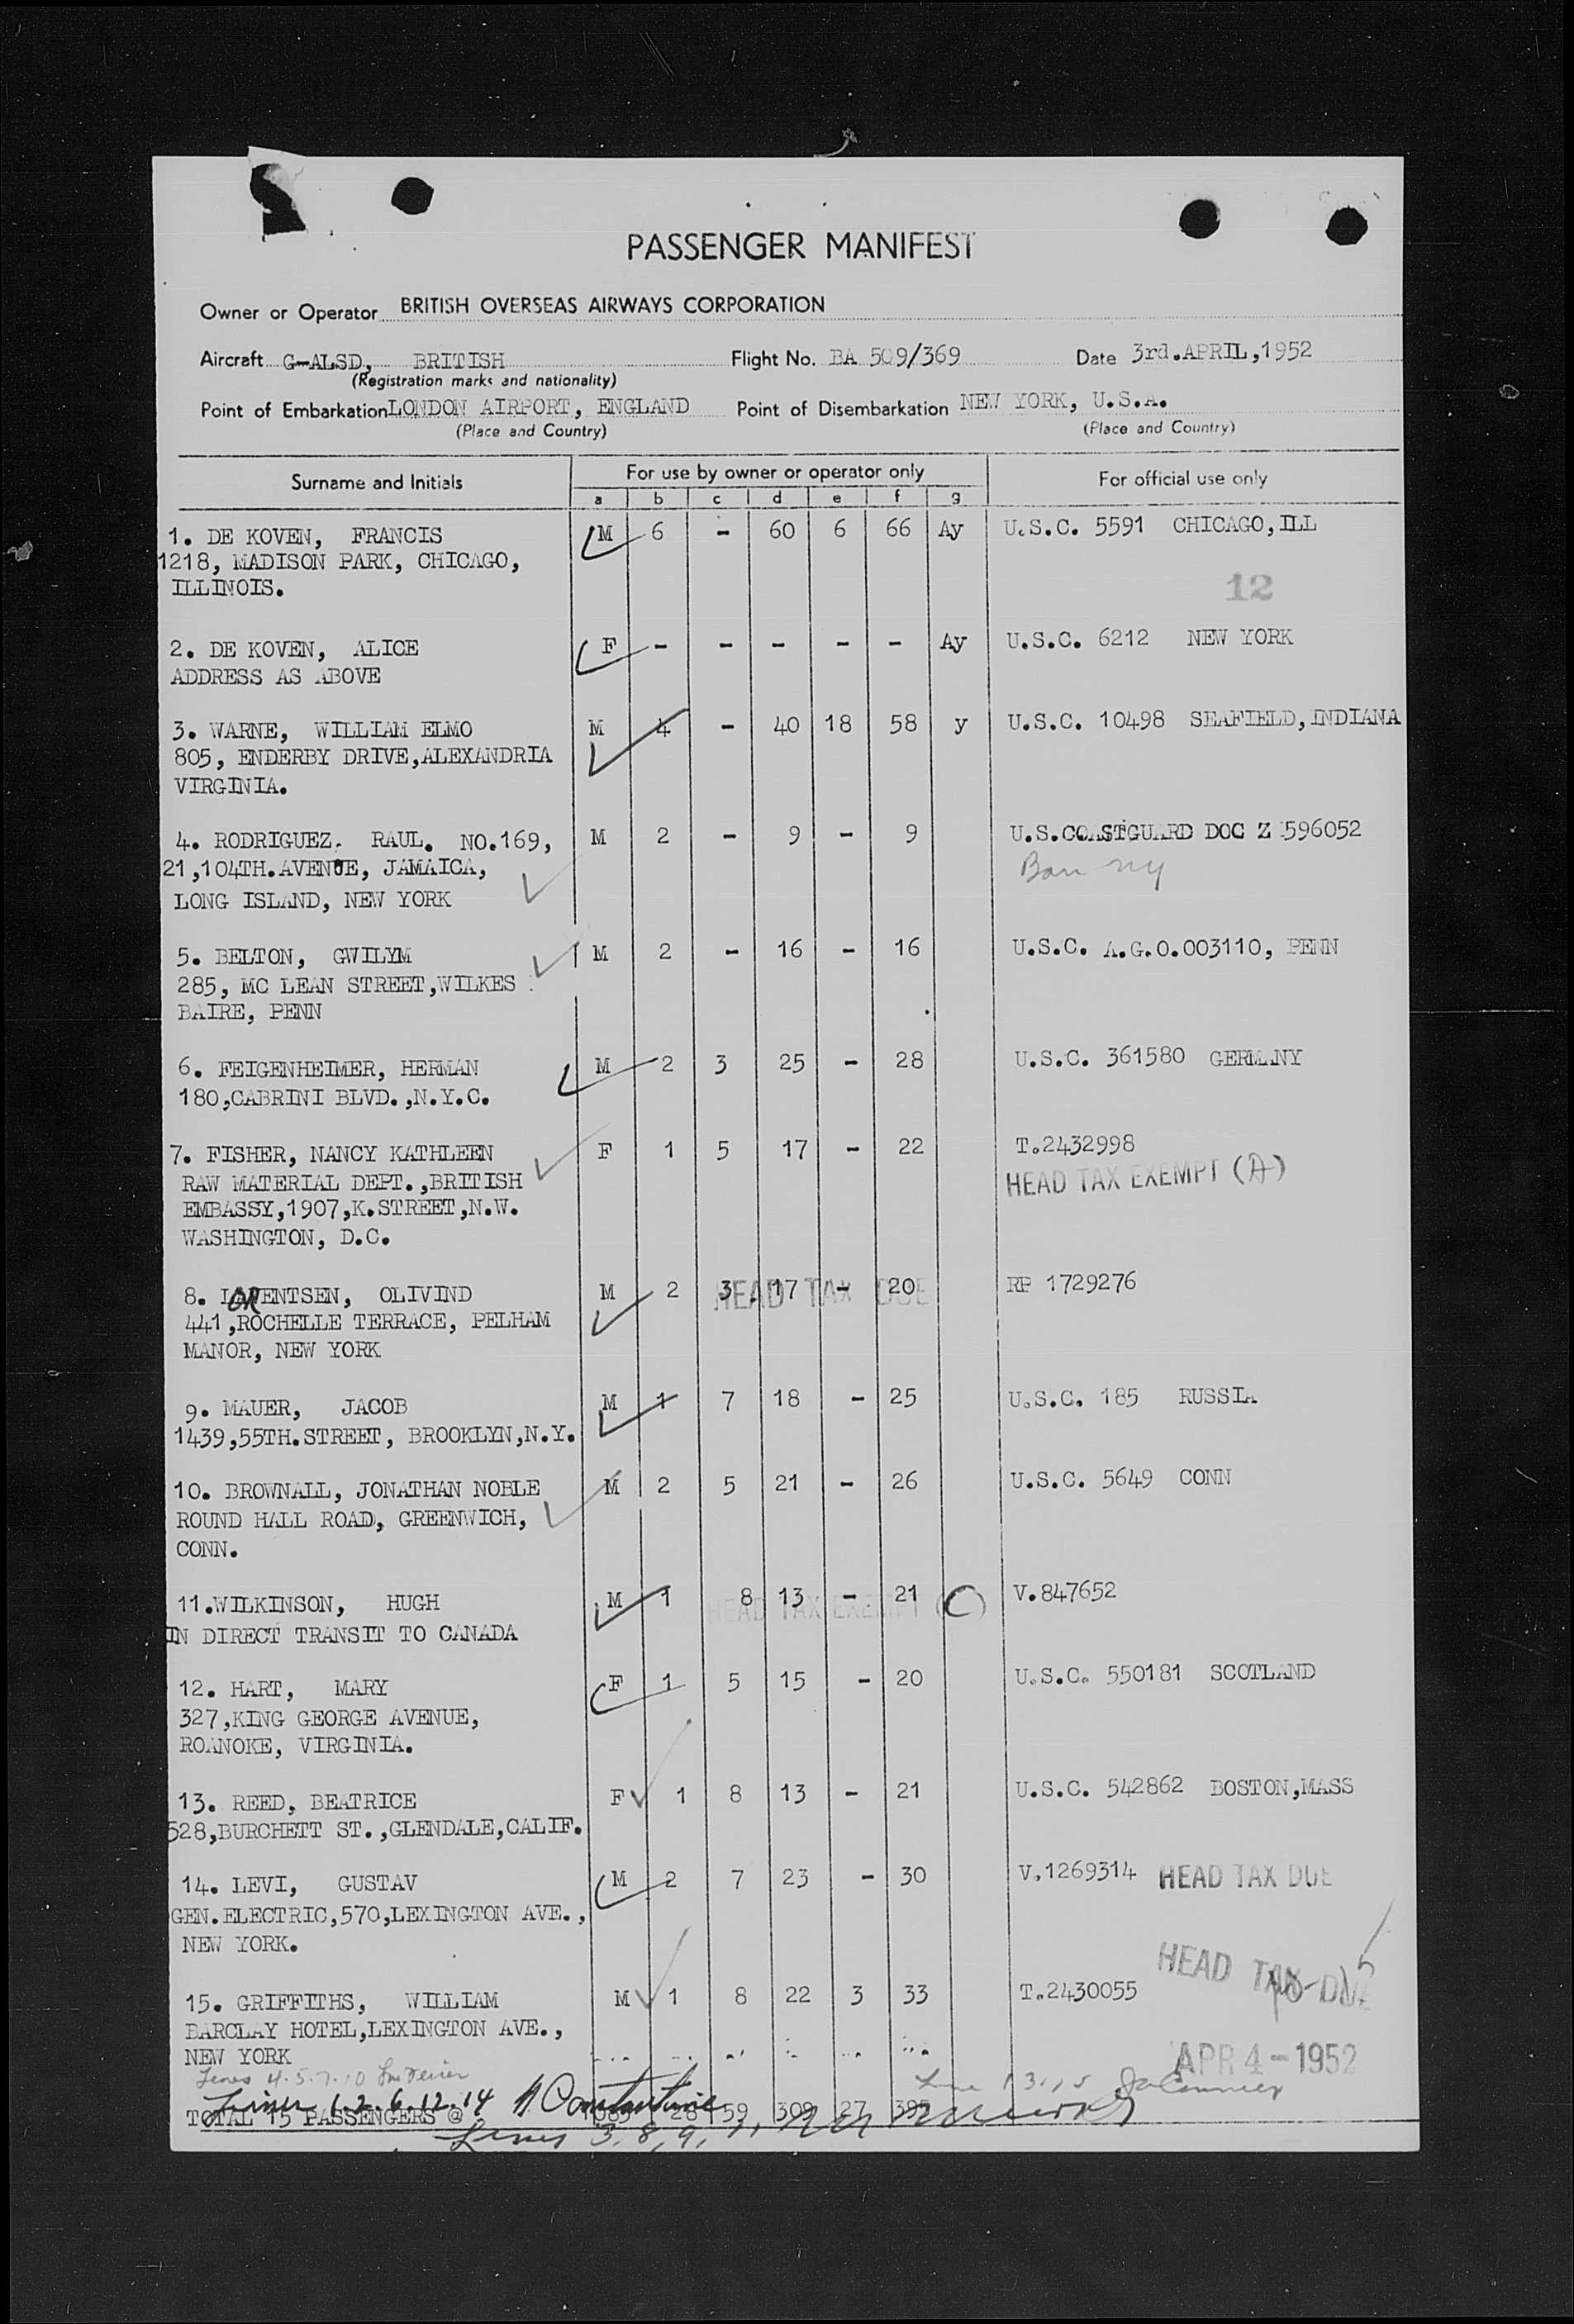 PASSENGER MANIFEST
Owner or Operator BRITISH OVERSEAS AIRWAYS CORPORATION
Aircraft G-ALSD, BRITISH Flight No. BA 509/369 Date 3rd.APRIL,1952
(Registration marks and nationality)
Point of Embarkation LONDON AIRPORT, ENGLAND Point of Disembarkation NEW YORK, U.S.A.
(Place and Country) (Place and Country)
Surname and Initials For use by owner or operator only For official use only
a b c d e f g
1. DE KOVEN, FRANCIS M 6 - 60 6 66 Ay U.S.C. 5591 CHICAGO,ILL
1218, MADISON PARK, CHICAGO,
ILLINOIS. 12
2. DE KOVEN, ALICE F - - - - - Ay U.S.C. 6212 NEW YORK
ADDRESS AS ABOVE
3. WARNE, WILLIAM ELMO M 4 - 40 18 58 y U.S.C. 10498 SEAFIELD,INDIANA
805, ENDERBY DRIVE,ALEXANDRIA
VIRGINIA.
4. RODRIGUEZ, RAUL. NO.169, M 2 - 9 - 9 U.S.COASTGUARD DOC Z 596052
21,104TH.AVENUE, JAMAICA, ny
LONG ISLAND, NEW YORK
5. BELTON, GWILYM M 2 - 16 - 16 U.S.C. A.G.O.003110, PENN
285, MC LEAN STREET,WILKES
BAIRE, PENN
6. FEIGENHEIMER, HERMAN M 2 3 25 - 28 U.S.C. 361580 GERMANY
180,CABRINI BLVD.,N.Y.C.
7. FISHER, NANCY KATHLEEN F 1 5 17 - 22 T.2432998
RAW MATERIAL DEPT.,BRITISH HEAD TAX EXEMPT (A)
EMBASSY,1907,K.STREET,N.W.
WASHINGTON, D.C.
8. LORENTSEN, OLIVIND M 2 3 17 - 20 RP 1729276
HEAD TAX DUE
441,ROCHELLE TERRACE, PELHAM
MANOR, NEW YORK
9. MAUER, JACOB M 1 7 18 - 25 U.S.C. 185 RUSSIA
1439,55TH.STREET, BROOKLYN,N.Y.
10. BROWNALL, JONATHAN NOBLE M 2 5 21 - 26 U.S.C. 5649 CONN
ROUND HALL ROAD, GREENWICH,
CONN.
11.WILKINSON, HUGH M 1 8 13 - 21 V.847652
HEAD TAX EXEMPT (C)
IN DIRECT TRANSIT TO CANADA
12. HART, MARY F 1 5 15 - 20 U.S.C. 550181 SCOTLAND
327,KING GEORGE AVENUE,
ROANOKE, VIRGINIA.
13. REED, BEATRICE F 1 8 13 - 21 U.S.C. 542862 BOSTON,MASS
528,BURCHETT ST.,GLENDALE,CALIF.
14. LEVI, GUSTAV M 2 7 23 - 30 V.1269314 HEAD TAX DUE
GEN.ELECTRIC,570,LEXINGTON AVE.,
NEW YORK.
HEAD TAX DUE
15. GRIFFITHS, WILLIAM M 1 8 22 3 33 T.2430055
BARCLAY HOTEL,LEXINGTON AVE.,
NEW YORK APR 4-1952
Lines 4.5.7.10
Lines 1.2.6.12.14
TOTAL 15 PASSENGERS @ 1085 28 59 309 27 395
Lines 3, 8, 9, 11